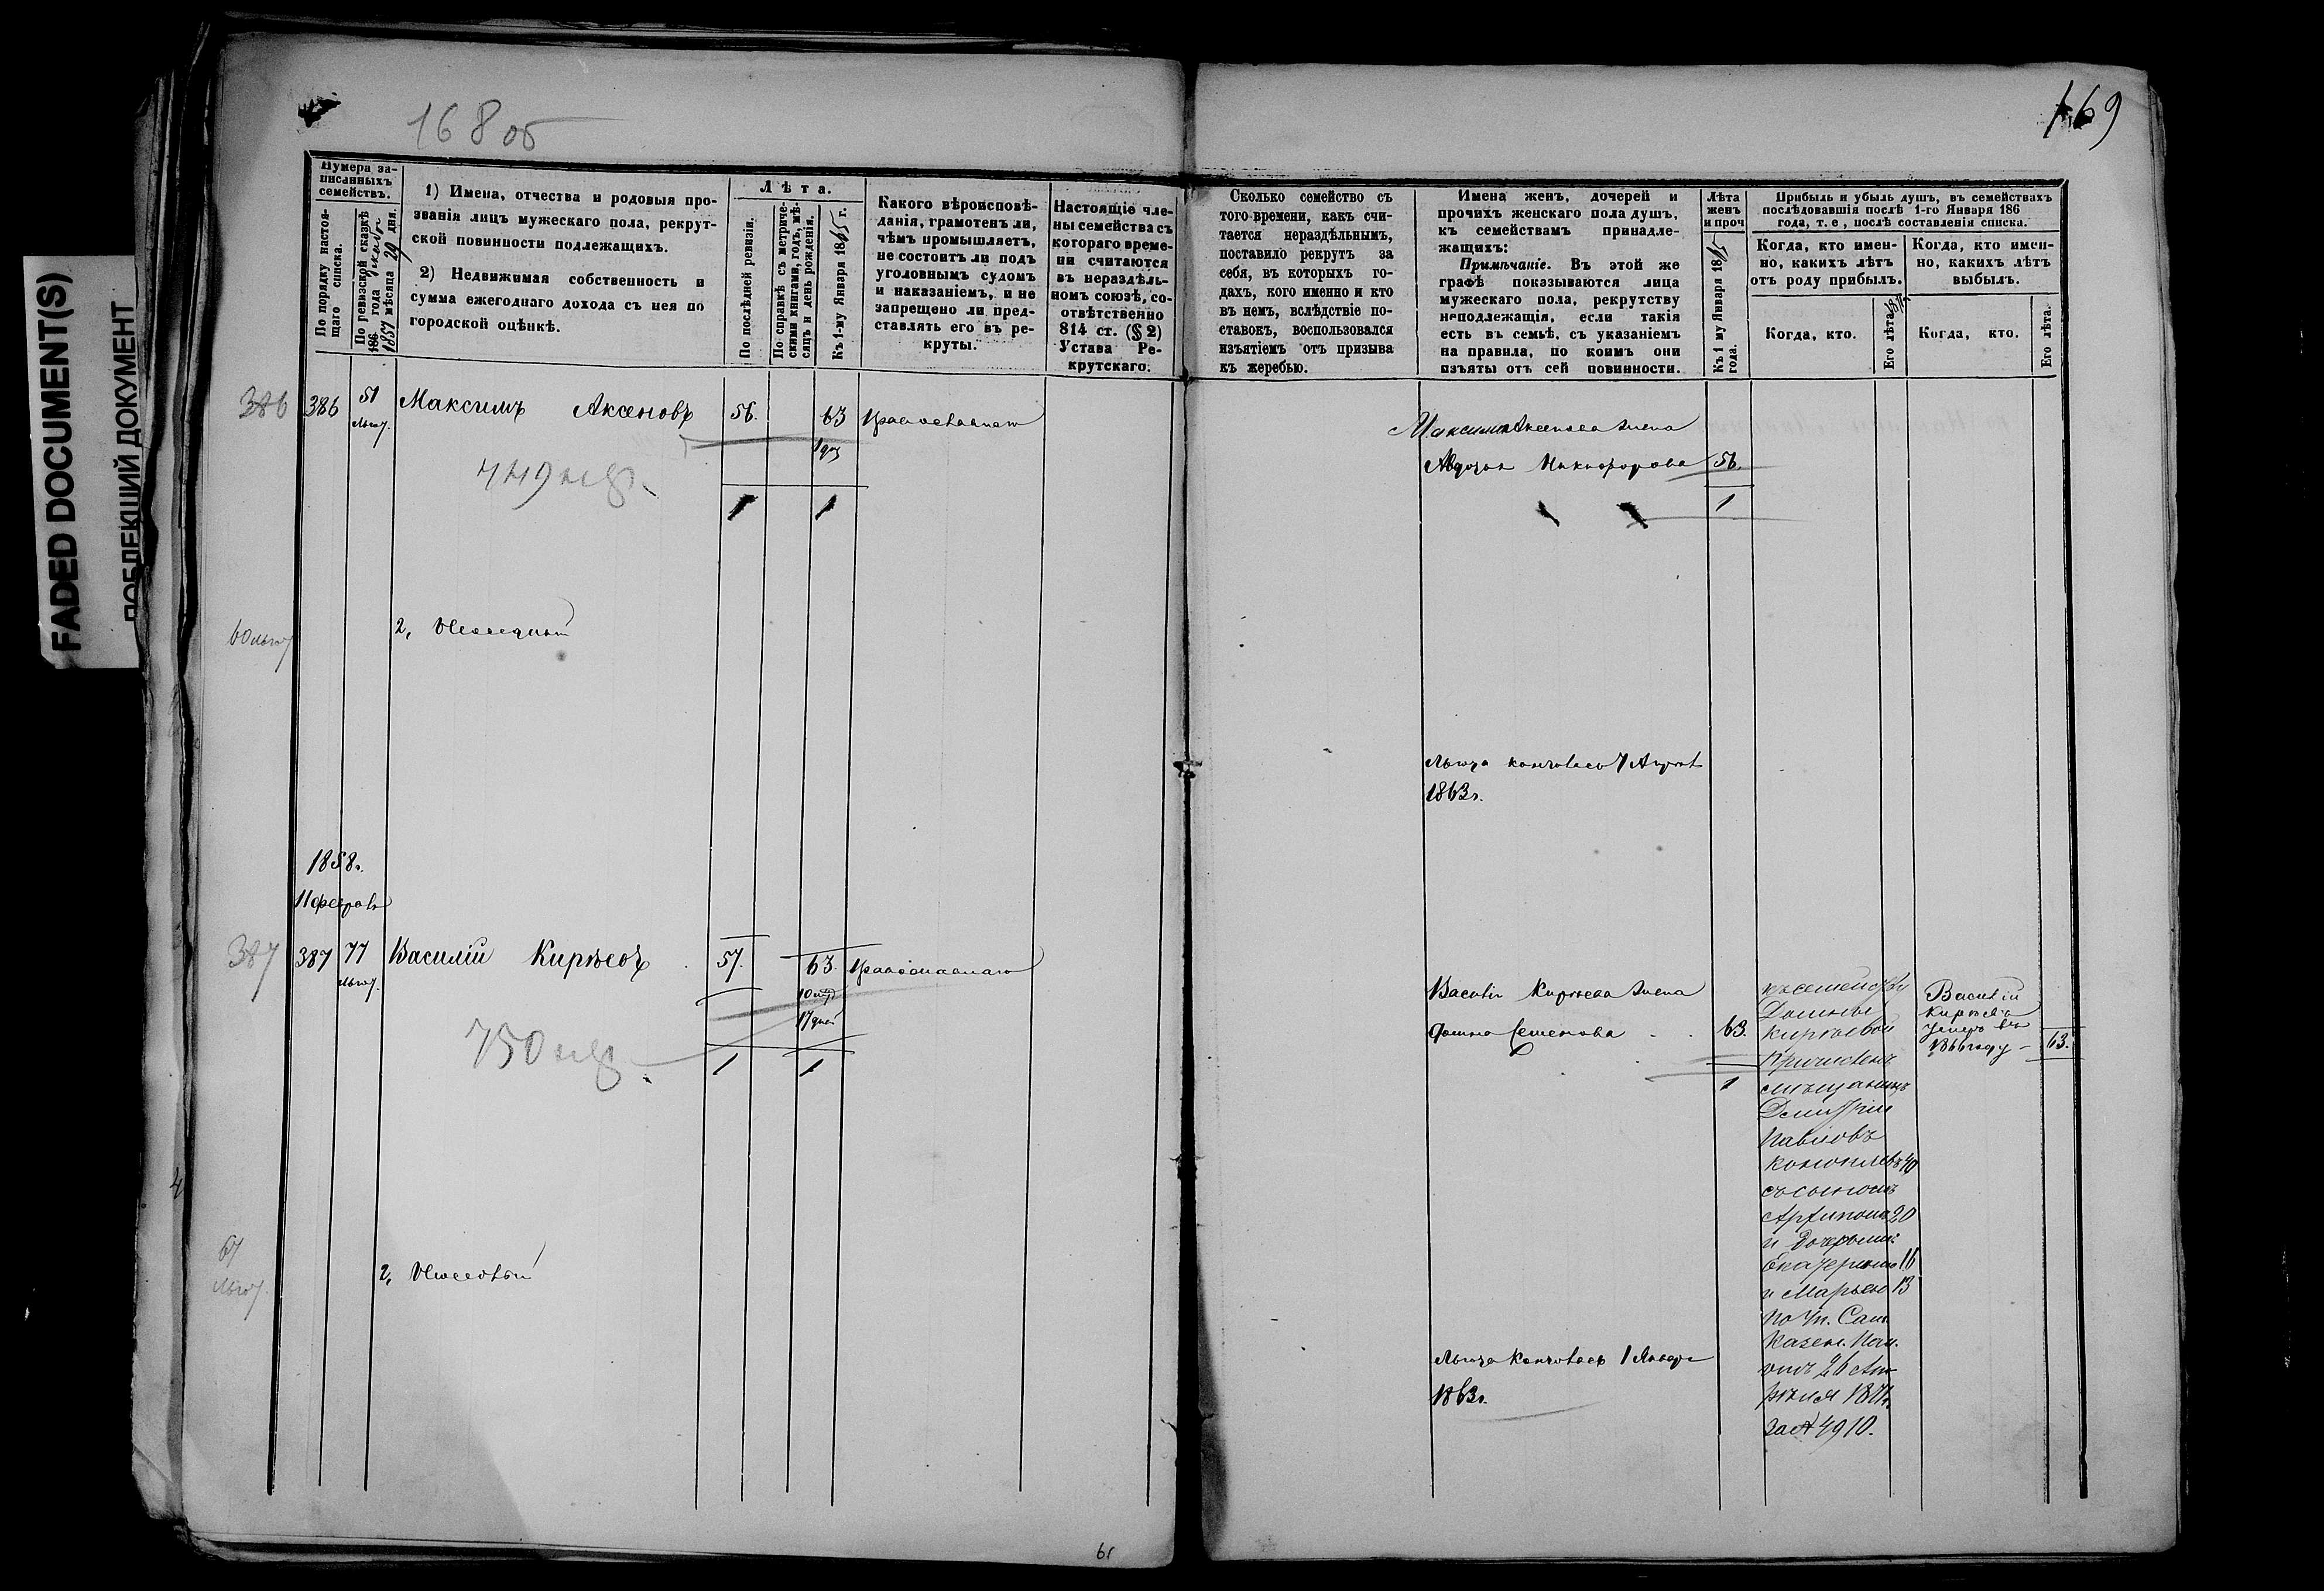 FADED DOCUMENT(S)
ПОБЛЕКШИЙ ДОКУМЕНТ
168 об
169
Нумера за-
писанныхъ
семействъ.
По порядку настоя-
щаго списка.
По ревизской сказкѣ
186 года
1857 мѣсяца 29 дня.
1) Имена, отчества и родовыя про-
званія лицъ мужескаго пола, рекрут-
ской повинности подлежащихъ.
2) Недвижимая собственность и
сумма ежегоднаго дохода съ нея по
городской оцѣнкѣ.
Лѣта.
По послѣдней ревизіи.
По справкѣ съ метриче-
скими книгами, годъ, мѣ-
сяцъ и день рожденія.
Къ 1-му Января 1865 г.
Какого вѣроисповѣ-
данія, грамотенъ ли,
чѣмъ промышляетъ,
не состоитъ ли подъ
уголовнымъ судомъ
и наказаніемъ, и не
запрещено ли пред-
ставлять его въ ре-
круты.
Настоящіе чле-
ны семейства съ
котораго време-
ни считаются
въ нераздѣль-
номъ союзѣ, со-
отвѣтственно
814 ст. (§ 2)
Устава Ре-
крутскаго.
Сколько семейство съ
того времени, какъ счи-
тается нераздѣльнымъ,
поставило рекрутъ за
себя, въ которыхъ го-
дахъ, кого именно и кто
въ немъ, вслѣдствіе по-
ставокъ, воспользовался
изъятіемъ отъ призыва
къ жеребью.
Имена женъ, дочерей и
прочихъ женскаго пола душъ,
къ семействамъ принадле-
жащихъ:
Примѣчаніе. Въ этой же
графѣ показываются лица
мужескаго пола, рекрутству
неподлежащія, если такія
есть въ семьѣ, съ указаніемъ
на правила, по коимъ они
изъяты отъ сей повинности.
Лѣта
женъ
и проч
Къ 1 му Января 18
года.
Прибыль и убыль душъ, въ семействахъ
послѣдовавшія послѣ 1-го Января 186
года, т. е , послѣ составленія списка.
Когда, кто имен-
но, какихъ лѣтъ
отъ роду прибылъ.
Когда, кто имен-
но, какихъ лѣтъ
выбылъ.
Когда, кто.
Его лѣта.
Когда, кто.
Его лѣта.
386 386 51 Максимъ Аксеновъ 56. 63
749
1 1
Максима Аксенова жена
Авдотья Никифорова 56.
1
2,
Льгота кончилась 7
1863г.
1858г.
387 387 77 Василій Кирѣевъ 57. 63.
750
17 дней
1 1
Василія Кирѣева жена
Домна Семенова 63.
1
къ семейству
Домны
Кирѣевой
причисленъ
мѣщанинъ
Дмитрій
Павловъ
40
съ сыномъ
20
и дочерьми:
Екатериною 16
и Марьею 13
по ук. Сам.
Казен. Пал.
отъ 26 Ап-
рѣля
за № 4910.
Василій
Кирѣевъ
умеръ въ
1866 году – 63.
2,
Льгота кончилась 1 Января
1863г.